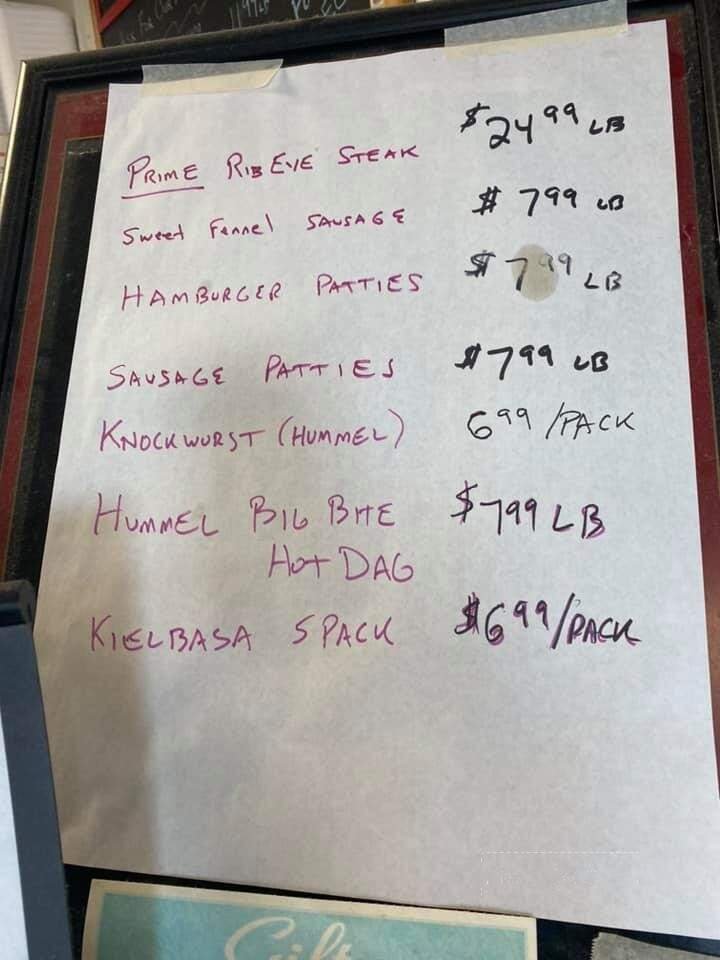 PRIME RIB EYE STEAK $24.99 LB
Sweet Fennel SAUSAGE $ 7.99 LB
HAMBURGER PATTIES $ 7.99 LB
SAUSAGE PATTIES $7.99 LB
KNOCKWURST (HUMMEL) 6.99 /PACK
HUMMEL BIG BITE $7.99 LB
HOT DAG
KIELBASA 5 PACK $6.99/PACK
Gift